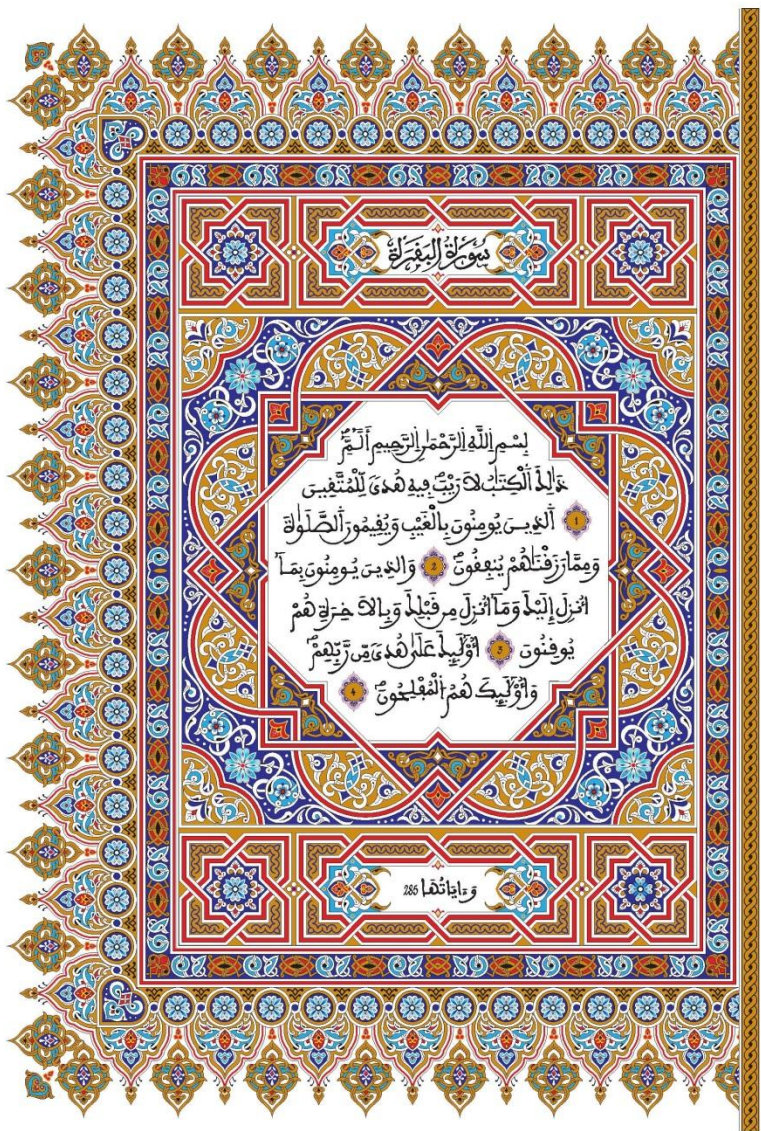 سُورَةُ الْبَقَرَةِ
بِسْمِ اِللَّهِ اِلرَّحْمَٰنِ اِلرَّحِيمِ أَلَٓمِّٓۖ
ذَٰلِكَ اَ۬لْكِتَٰبُ لَا رَيْبَۖ فِيهِ هُدىٗ لِّلْمُتَّقِينَ
1 اَ۬لذِينَ يُومِنُونَ بِالْغَيْبِ وَيُقِيمُونَ اَ۬لصَّلَوٰةَ
وَمِمَّا رَزَقْنَٰهُمْ يُنفِقُونَۖ 2 وَالذِينَ يُومِنُونَ بِمَآ
أُنزِلَ إِلَيْكَ وَمَآ أُنزِلَ مِن قَبْلِكَ وَبِالَاخِرَةِ هُمْ
يُوقِنُونَ 3 أُوْلَٰٓئِكَ عَلَىٰ هُدىٗ مِّن رَّبِّهِمْۖ
وَأُوْلَٰٓئِكَ هُمُ اُ۬لْمُفْلِحُونَۖ 4
وَءَايَاتُهَا 285